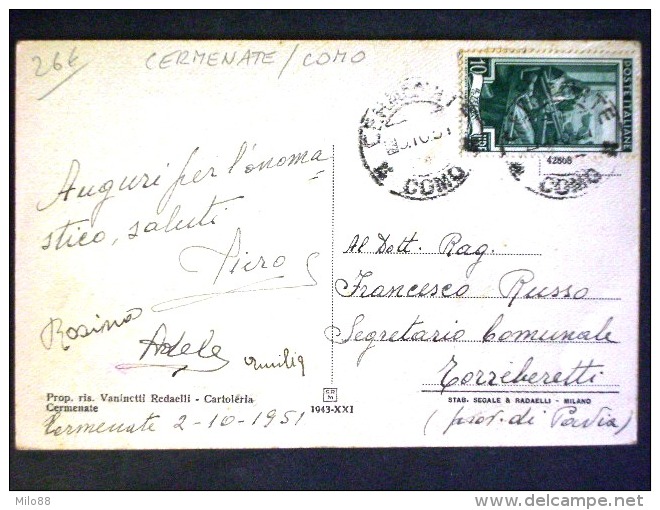 26€
CERMENATE/COMO
10
POSTE ITALIANE
CERMENATE
.10.51
COMO
COMO
42808
Auguri per l'onoma
stico, saluti
Piero
Rosina
Adele
Emilia
Al Dott. Rag.
Francesco Russo
Segretario Comunale
Torreberetti
(prov. di Pavia)
Prop. ris. Vaninetti Redaelli - Cartoleria
Cermenate
1943-XXI
STAB. SEGALE & RADAELLI - MILANO
Cermenate 2-10-1951
Milo88
www.delcampe.net